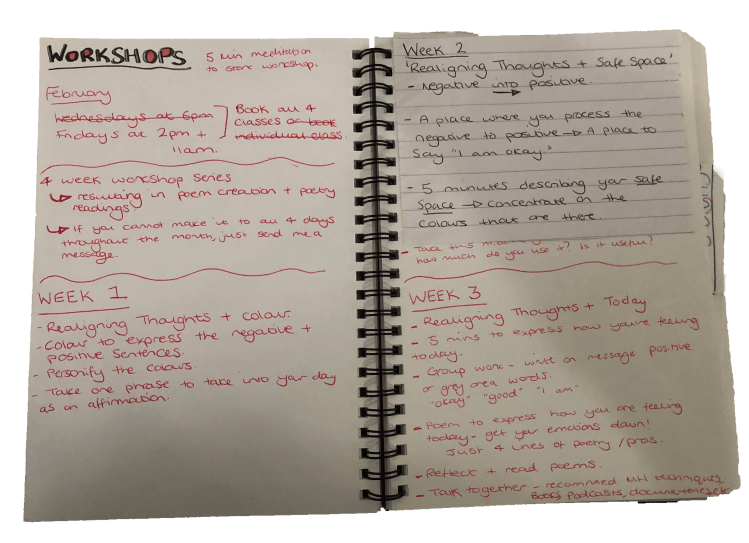 WORKSHOPS
5 min meditation
to start workshop.
February
Wednesdays at 6pm
Fridays at 2pm +
11am.
Book all 4
classes or book
individual class.
4 week workshop series
↳ resulting in poem creation + poetry
readings
↳ If you cannot make it to all 4 days
throughout the month, just send me a
message.
WEEK 1
- Realigning Thoughts + colour.
- Colour to express the negative +
positive sentences.
- Personify the colours.
- Take one phrase to take into your day
as an affirmation.
Week 2
'Realigning Thoughts + Safe Space'
- Negative into positive.
- A place where you process the
negative to positive → A place to
say "I am okay."
- 5 minutes describing your safe
space → concentrate on the
colours that are there.
- Take this
how much do you use it? Is it useful?
WEEK 3
- Realigning Thoughts + Today
- 5 mins to express how you're feeling
today.
- Group work - write on message positive
or grey area words.
"okay" "good" "I am"
- Poem to express how you are feeling
today - get your emotions down!
Just 4 lines of poetry / pros.
- Reflect + read poems.
- Talk together - recommed MH techniques,
Books, Podcasts, documentaries etc